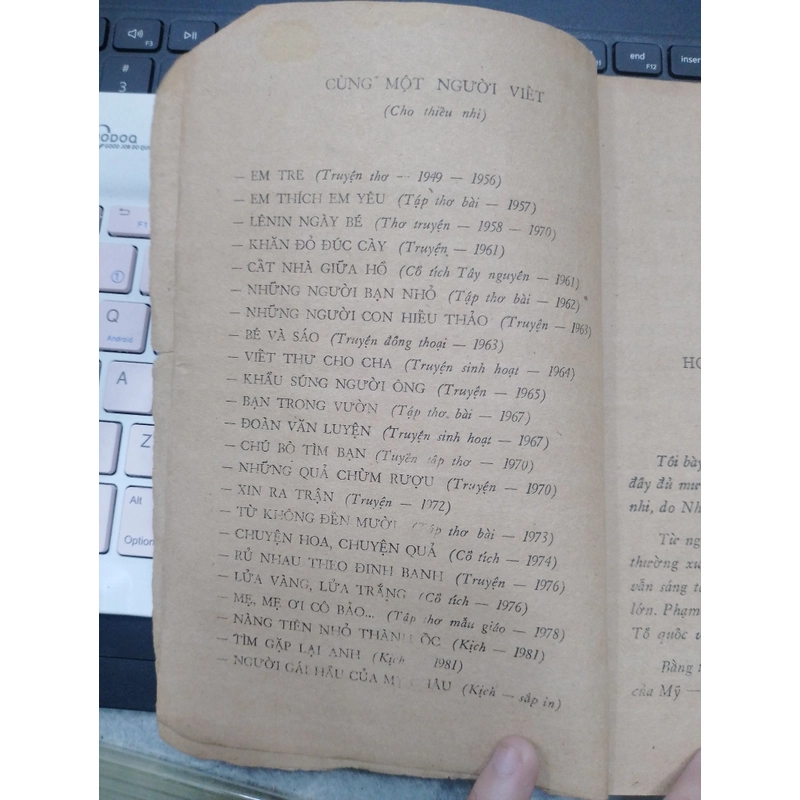 CÙNG MỘT NGƯỜI VIẾT
(Cho thiếu nhi)
— EM TRE (Truyện thơ — 1949 — 1956)
— EM THÍCH EM YÊU (Tập thơ bài — 1957)
— LÊNIN NGÀY BÉ (Thơ truyện — 1958 — 1970)
— KHĂN ĐỎ ĐÚC CÀY (Truyện — 1961)
— CẤT NHÀ GIỮA HỒ (Cổ tích Tây nguyên — 1961)
— NHỮNG NGƯỜI BẠN NHỎ (Tập thơ bài — 1962)
— NHỮNG NGƯỜI CON HIẾU THẢO (Truyện — 1963)
— BÉ VÀ SÁO (Truyện đồng thoại — 1963)
— VIẾT THƯ CHO CHA (Truyện sinh hoạt — 1964)
— KHẨU SÚNG NGƯỜI ÔNG (Truyện — 1965)
— BẠN TRONG VƯỜN (Tập thơ bài — 1967)
— ĐOÀN VĂN LUYỆN (Truyện sinh hoạt — 1967)
— CHÚ BÒ TÌM BẠN (Tuyển tập thơ — 1970)
— NHỮNG QUẢ CHÙM RƯỢU (Truyện — 1970)
— XIN RA TRẬN (Truyện — 1972)
— TỪ KHÔNG ĐẾN MƯỜI (Tập thơ bài — 1973)
— CHUYỆN HOA, CHUYỆN QUẢ (Cổ tích — 1974)
— RỦ NHAU THEO ĐINH BANH (Truyện — 1976)
— LỬA VÀNG, LỬA TRẮNG (Cổ tích — 1976)
— MẸ, MẸ ƠI CÔ BẢO... (Tập thơ mẫu giáo — 1978)
— NÀNG TIÊN NHỎ THÀNH ỐC (Kịch — 1981)
— TÌM GẶP LẠI ANH (Kịch 1981)
— NGƯỜI GÁI HẦU CỦA (Kịch — sắp in)
HO
Tôi bày
đây đủ mư
nhi, do Nh
Từ ng
thường xu
vẫn sáng t
lớn. Phạm
Tổ quốc v
Bằng t
của Mỹ —
F3
#
3
end
F12
insert
F1
Q
Android
A
Z
Alt
Option